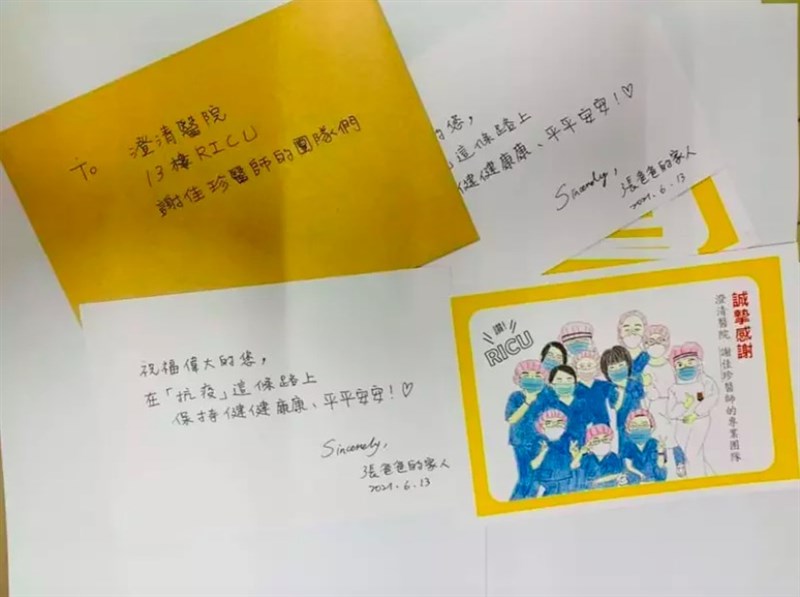 To 澄清醫院
13樓RICU
謝佳珍醫師的團隊們
的您,
這條路上
健健康康、平平安安!♡
Sincerely,
張爸爸的家人
2021.6.13
祝福偉大的您,
在「抗疫」這條路上
保持健健康康、平平安安!♡
Sincerely,
張爸爸的家人
2021.6.13
讚!
RICU
誠摯感謝
澄清醫院 謝佳珍醫師的專業團隊